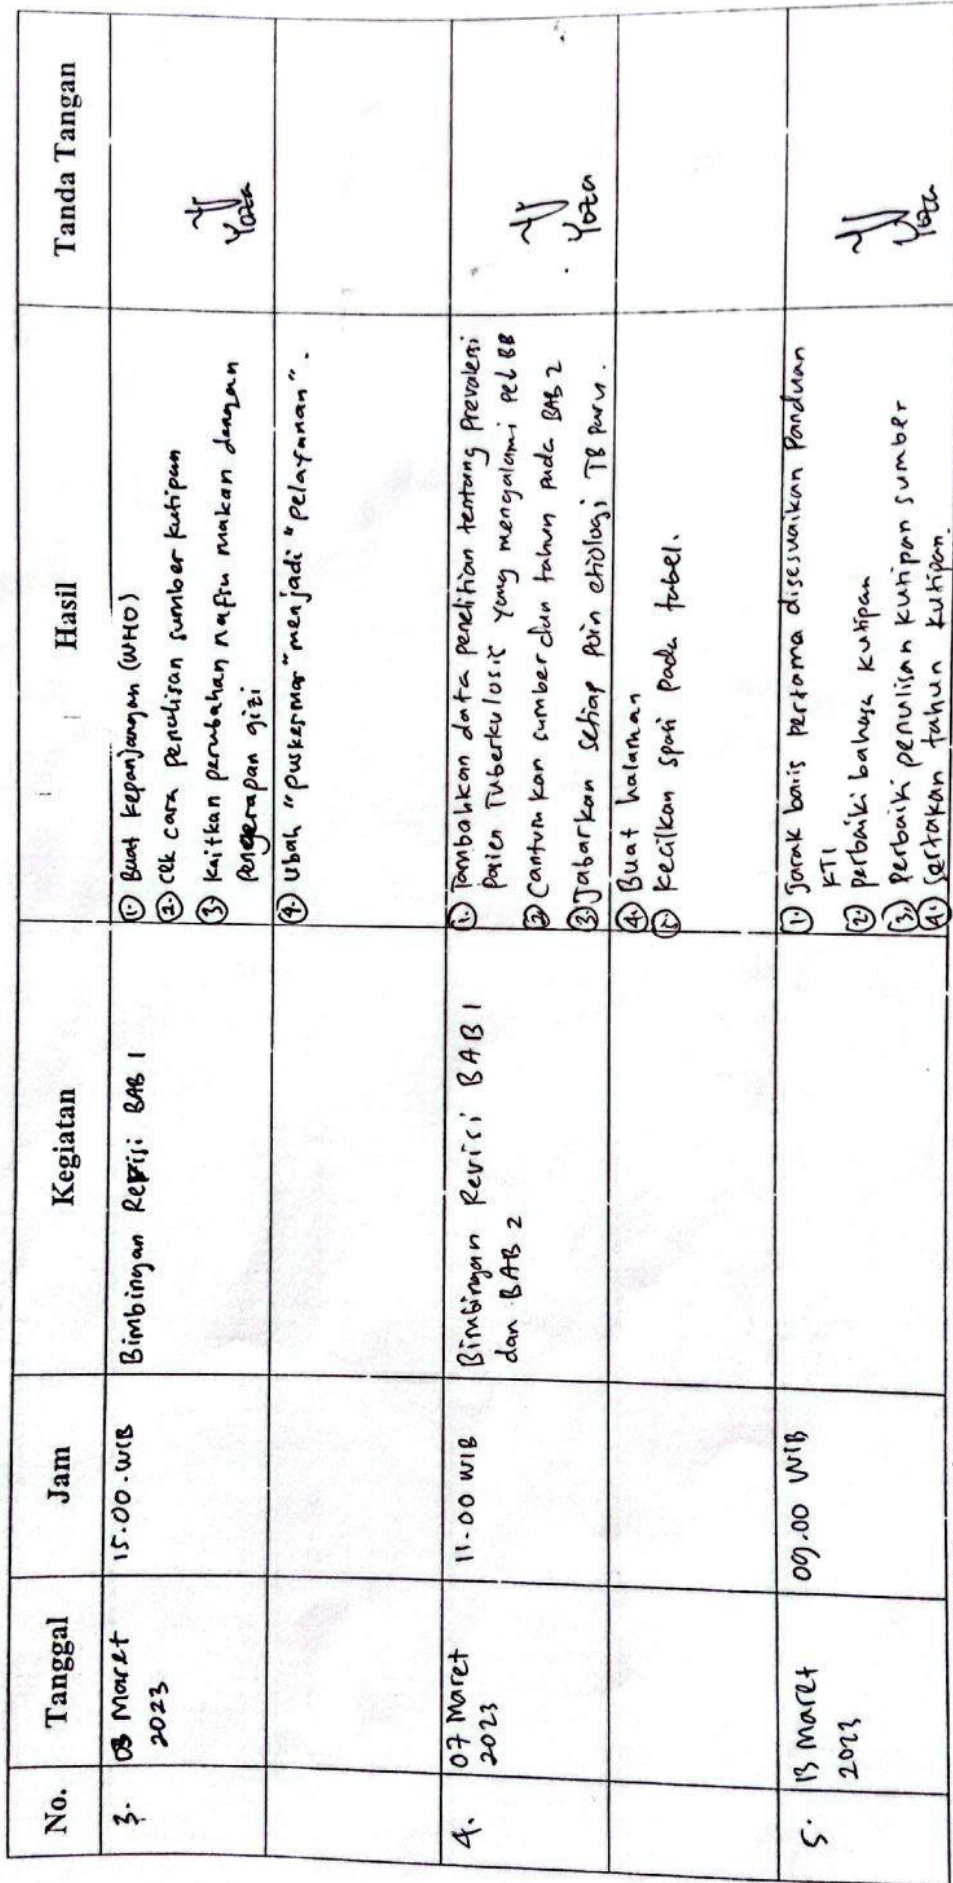 No. Tanggal Jam Kegiatan Hasil Tanda Tangan
3. 03 Maret 15.00.WIB Bimbingan Revisi BAB 1 ① Buat kepanjangan (WHO)
2023 ② Cek cara penulisan sumber kutipan
③ kaitkan perubahan nafsu makan dengan
pengerapan gizi
Yoza
④ Ubah "puskesmas" menjadi "pelayanan".
4. 07 Maret 11.00 WIB Bimbingan Revisi BAB 1 ① Tambahkan data penelitian tentang Prevalensi
2023 dan BAB 2 pasien Tuberkulosis yang mengalami pel BB
② Cantumkan sumber dan tahun pada BAB 2
③ Jabarkan setiap poin etiologi TB Paru.
Yoza
④ Buat halaman
⑤ Kecilkan spasi pada tabel.
5. 13 Maret 09.00 WIB ① Jarak baris pertama disesuaikan Panduan
2023 KTI
② perbaiki bahasa kutipan
③ Perbaiki penulisan kutipan sumber
④ Sertakan tahun kutipan.
Yoza